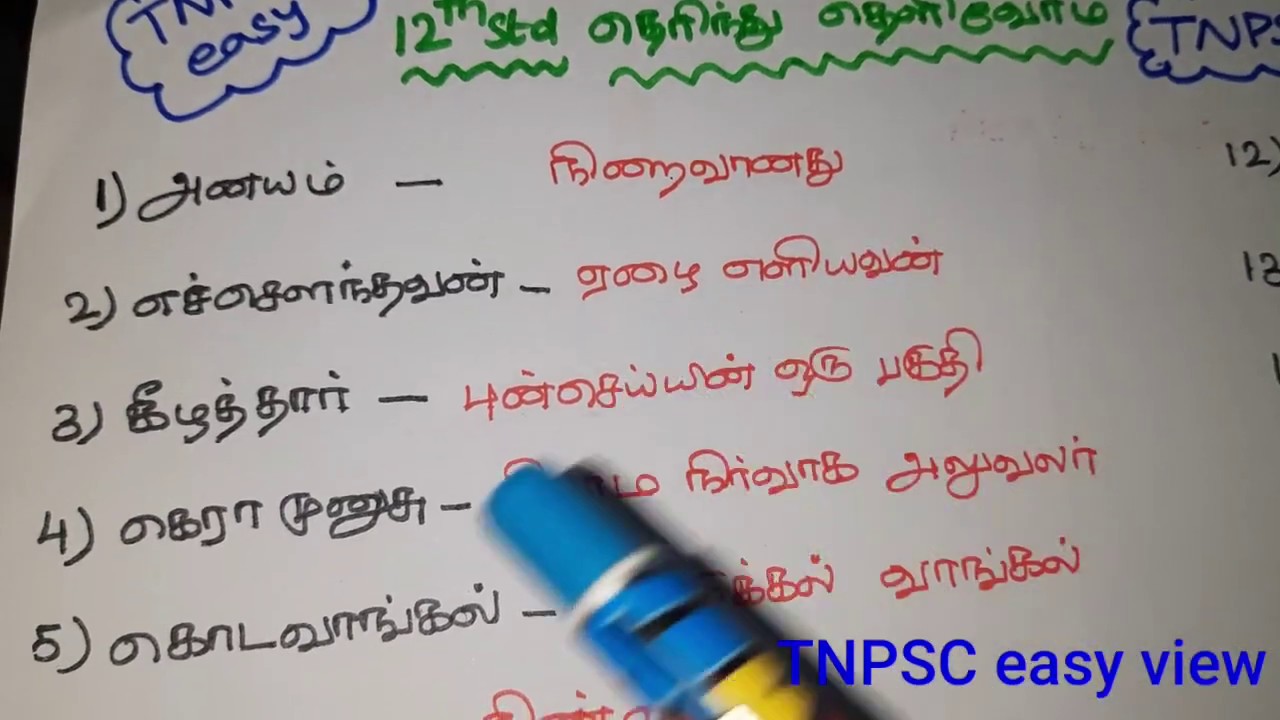 TNP
easy
12th std தெரிந்து தெளிவோம்
TNPS
1) அனயம் – நிறைவானது
12)
2) எச்சௌந்தவன் – ஏழை எளியவன்
3) கீழத்தார் – புன்செய்யின் ஒரு பகுதி
4) கெரா முனுசு – நிர்வாக அலுவலர்
5) கொடவாங்கல் – வாங்கல்
TNPSC easy view